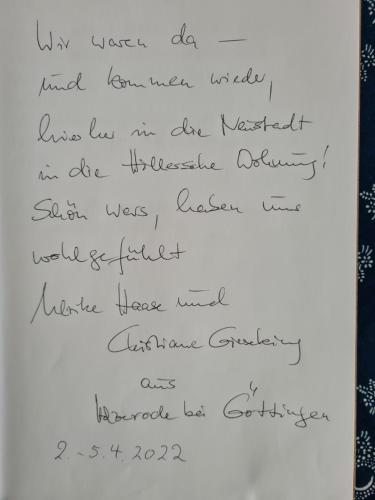 Wir waren da —
und kommen wieder,
hierher in die Neustadt
in die Wohnung!
Schön wars, haben uns
wohlgefühlt
Ulrike Haase und
Christiane Gieseking
aus
bei Göttingen
2. - 5.4.2022